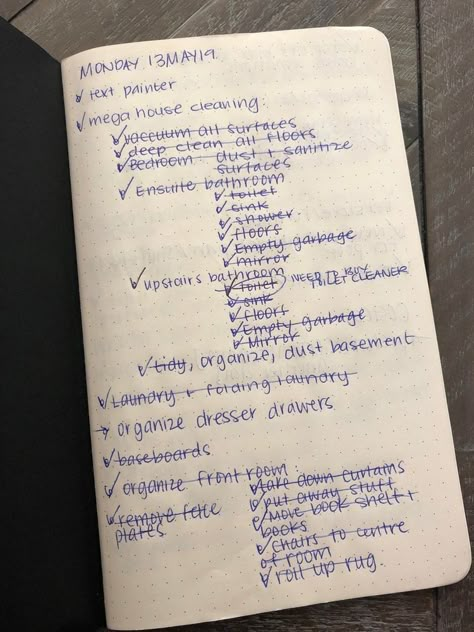 MONDAY 13MAY19
✓ text painter
✓ mega house cleaning:
✓ vaccuum all surfaces
✓ deep clean all floors
✓ Bedroom: dust + sanitize
surfaces
✓ Ensuite bathroom
✓ toilet
✓ sink
✓ shower
✓ floors
✓ Empty garbage
✓ mirror
✓ upstairs bathroom
✓ toilet NEED TO BUY
TOILET CLEANER
✓ sink
✓ floors
✓ Empty garbage
✓ Mirror
✓ tidy, organize, dust basement
✓ Laundry + folding laundry
→ organize dresser drawers
✓ baseboards
✓ organize front room:
✓ take down curtains
✓ put away stuff
✓ Move book shelf +
books
✓ chairs to centre
of room
✓ roll up rug.
✓ remove face
plates